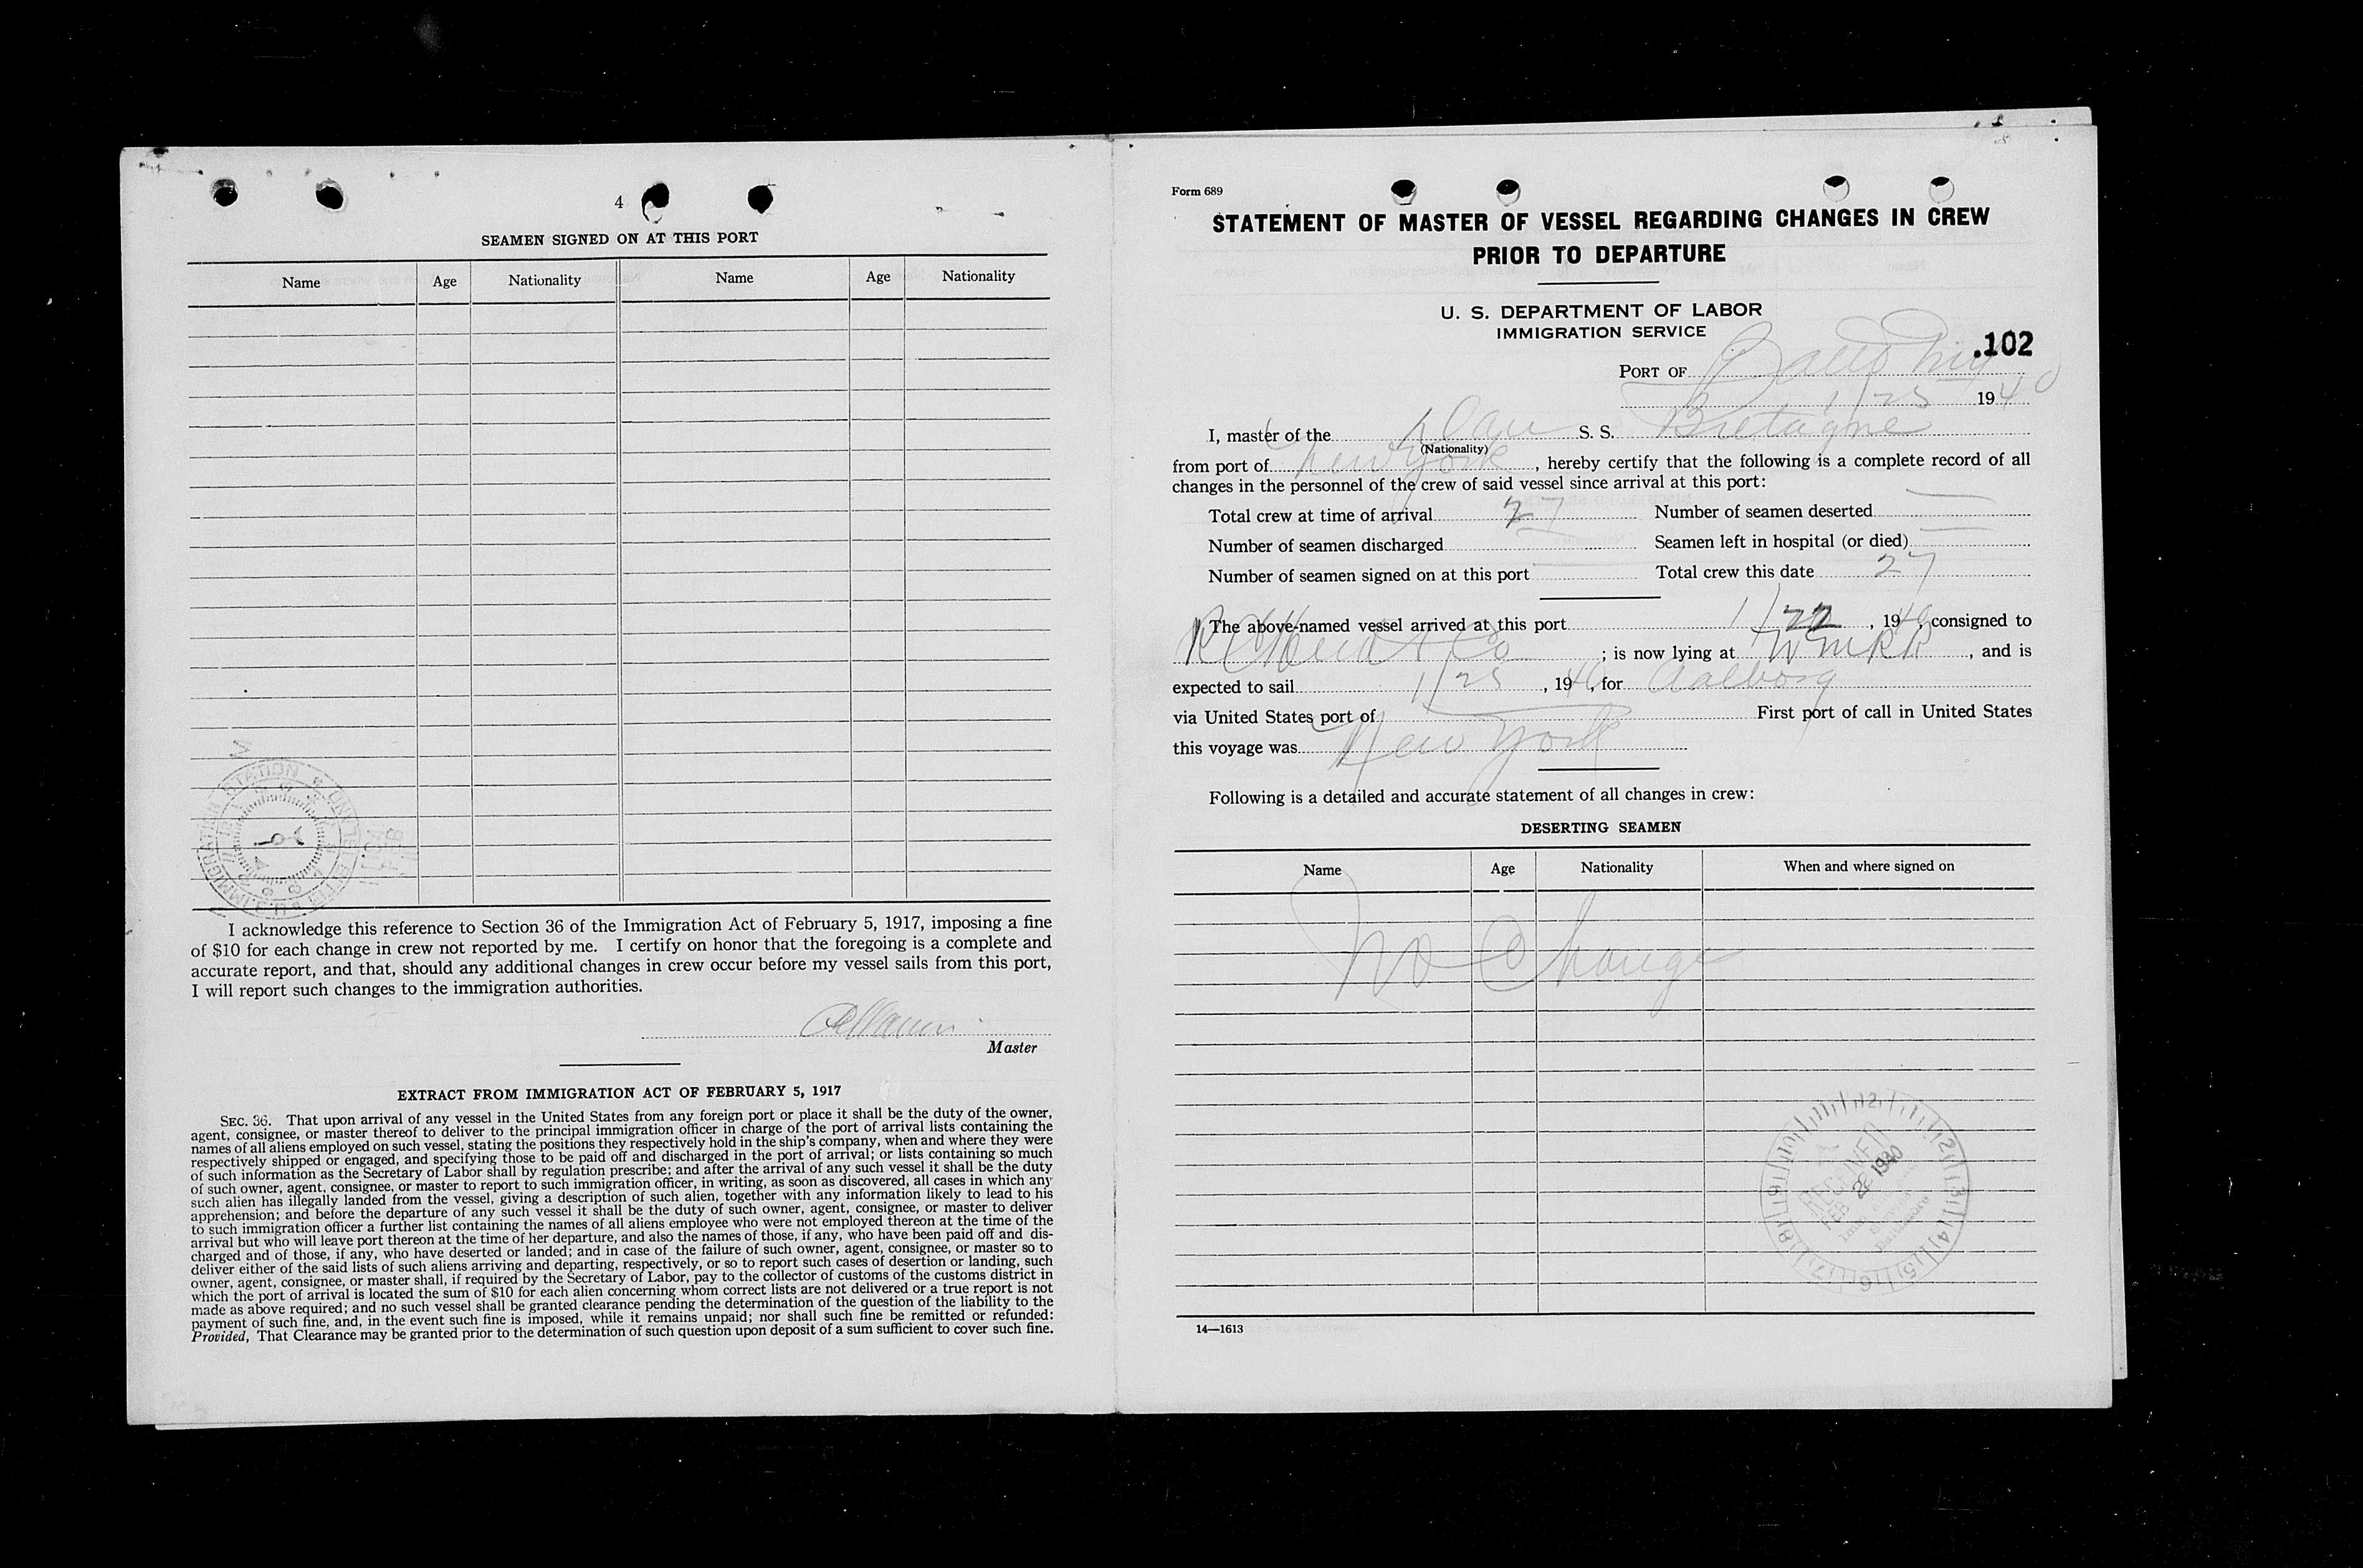 4
SEAMEN SIGNED ON AT THIS PORT
Name Age Nationality Name Age Nationality
I acknowledge this reference to Section 36 of the Immigration Act of February 5, 1917, imposing a fine
of $10 for each change in crew not reported by me. I certify on honor that the foregoing is a complete and
accurate report, and that, should any additional changes in crew occur before my vessel sails from this port,
I will report such changes to the immigration authorities.
Master
EXTRACT FROM IMMIGRATION ACT OF FEBRUARY 5, 1917
SEC. 36. That upon arrival of any vessel in the United States from any foreign port or place it shall be the duty of the owner,
agent, consignee, or master thereof to deliver to the principal immigration officer in charge of the port of arrival lists containing the
names of all aliens employed on such vessel, stating the positions they respectively hold in the ship's company, when and where they were
respectively shipped or engaged, and specifying those to be paid off and discharged in the port of arrival; or lists containing so much
of such information as the Secretary of Labor shall by regulation prescribe; and after the arrival of any such vessel it shall be the duty
of such owner, agent, consignee, or master to report to such immigration officer, in writing, as soon as discovered, all cases in which any
such alien has illegally landed from the vessel, giving a description of such alien, together with any information likely to lead to his
apprehension; and before the departure of any such vessel it shall be the duty of such owner, agent, consignee, or master to deliver
to such immigration officer a further list containing the names of all aliens employee who were not employed thereon at the time of the
arrival but who will leave port thereon at the time of her departure, and also the names of those, if any, who have been paid off and dis-
charged and of those, if any, who have deserted or landed; and in case of the failure of such owner, agent, consignee, or master so to
deliver either of the said lists of such aliens arriving and departing, respectively, or so to report such cases of desertion or landing, such
owner, agent, consignee, or master shall, if required by the Secretary of Labor, pay to the collector of customs of the customs district in
which the port of arrival is located the sum of $10 for each alien concerning whom correct lists are not delivered or a true report is not
made as above required; and no such vessel shall be granted clearance pending the determination of the question of the liability to the
payment of such fine, and, in the event such fine is imposed, while it remains unpaid; nor shall such fine be remitted or refunded:
Provided, That Clearance may be granted prior to the determination of such question upon deposit of a sum sufficient to cover such fine.
Form 689
STATEMENT OF MASTER OF VESSEL REGARDING CHANGES IN CREW
PRIOR TO DEPARTURE
U. S. DEPARTMENT OF LABOR
IMMIGRATION SERVICE
.102
PORT OF Balto Md
1/25 1940
I, master of the Dan S. S. Bretagne
(Nationality)
from port of New York, hereby certify that the following is a complete record of all
changes in the personnel of the crew of said vessel since arrival at this port:
Total crew at time of arrival 27 Number of seamen deserted —
Number of seamen discharged Seamen left in hospital (or died) —
Number of seamen signed on at this port Total crew this date 27
The above-named vessel arrived at this port 1/22, 1940, consigned to
& Co; is now lying at W M R R, and is
expected to sail 1/25, 1940, for Aalborg
via United States port of First port of call in United States
this voyage was New York
Following is a detailed and accurate statement of all changes in crew:
DESERTING SEAMEN
Name Age Nationality When and where signed on
No Change
RECEIVED
FEB 1940
14—1613